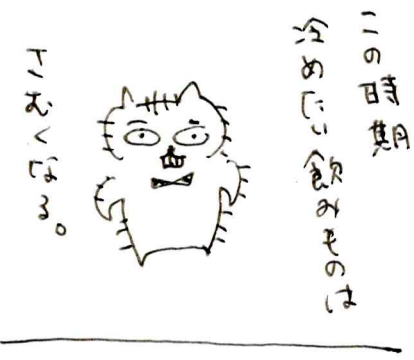 この時期
冷めたい飲みものは
さむくなる。